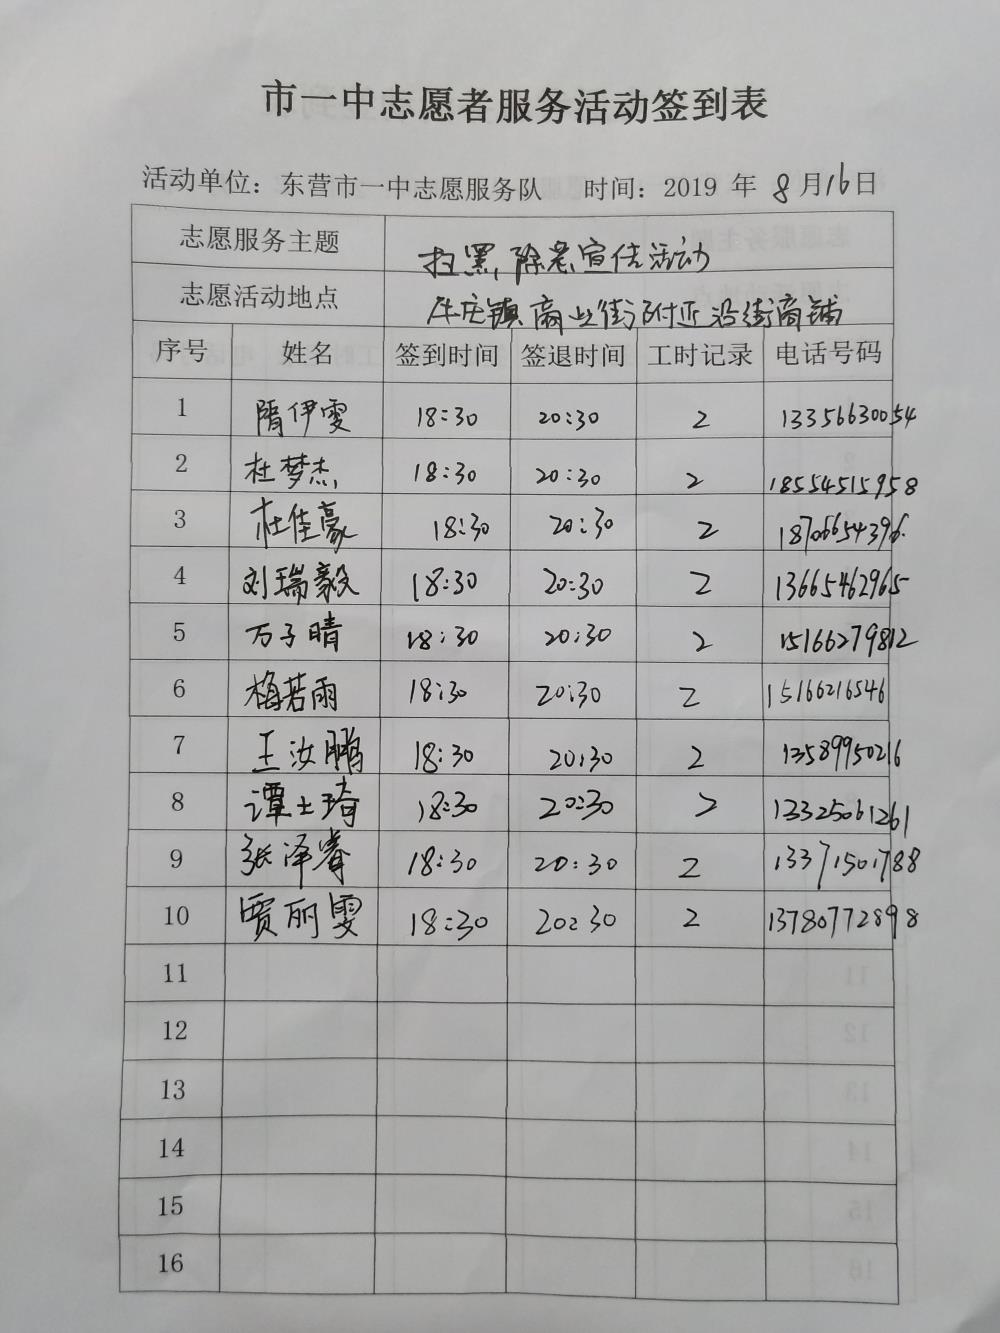 市一中志愿者服务活动签到表
活动单位：东营市一中志愿服务队 时间：2019 年 8月16日
志愿服务主题 扫黑,除恶宣传活动
志愿活动地点 牛庄镇商业街附近沿街商铺
序号 姓名 签到时间 签退时间 工时记录 电话号码
1 隋伊雯 18:30 20:30 2 13356630054
2 杜梦杰 18:30 20:30 2 18554515958
3 杜佳豪 18:30 20:30 2 18706654396
4 刘瑞毅 18:30 20:30 2 13665462965
5 万子晴 18:30 20:30 2 15166279812
6 梅若雨 18:30 20:30 2 15166216546
7 王汝鹏 18:30 20:30 2 13589950216
8 谭士琦 18:30 20:30 2 13325061261
9 张泽睿 18:30 20:30 2 13371501788
10 贾丽雯 18:30 20:30 2 13780772898
11
12
13
14
15
16